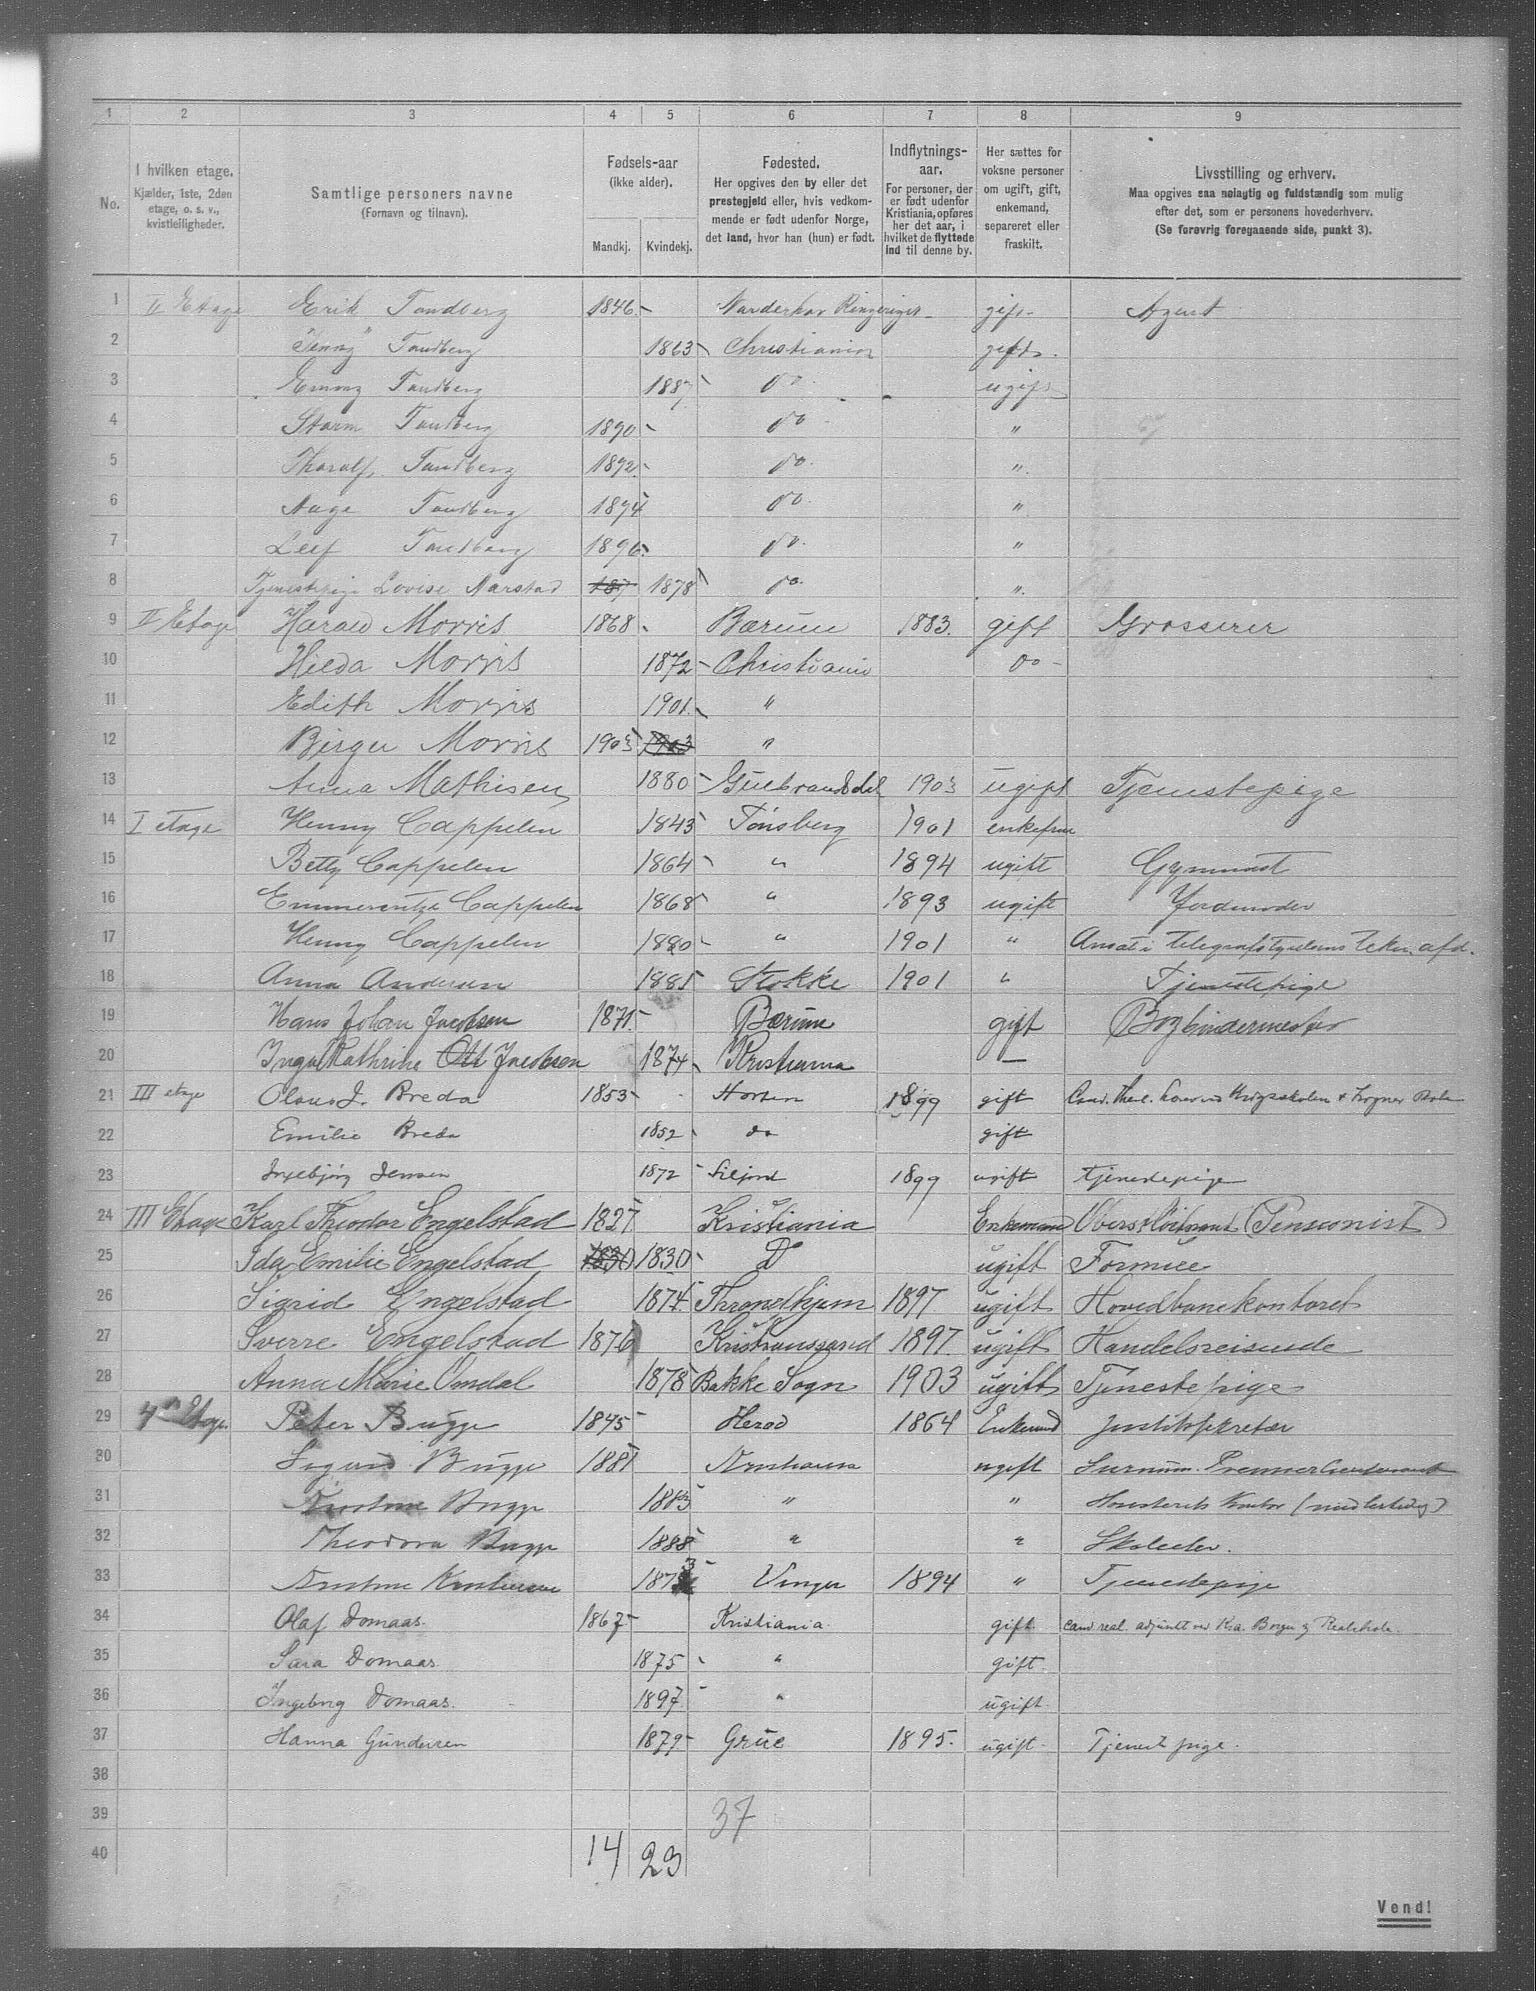 1 2 3 4 5 6 7 8 9
No.
I hvilken etage.
Kjælder, 1ste, 2den
etage, o. s. v.,
kvistleiligheder.
Samtlige personers navne
(Fornavn og tilnavn).
Fødsels-aar
(ikke alder).
Mandkj. Kvindekj.
Fødested.
Her opgives den by eller det
prestegjeld eller, hvis vedkom-
mende er født udenfor Norge,
det land, hvor han (hun) er født.
Indflytnings-
aar.
For personer, der
er født udenfor
Kristiania, opføres
her det aar, i
hvilket de flyttede
ind til denne by.
Her sættes for
voksne personer
om ugift, gift,
enkemand,
separeret eller
fraskilt.
Livsstilling og erhverv.
Maa opgives saa nøiagtig og fuldstændig som mulig
efter det, som er personens hovederhverv.
(Se forøvrig foregaaende side, punkt 3).
1 II Etage Erik Tandberg 1846 Norderhov Ringerige gift Agent
2 "Jenny" Tandberg 1863 Christiania gift
3 Emmy Tandberg 1887 do ugift
4 Storm Tandberg 1890 do "
5 Tharalf Tandberg 1892 do "
6 Aage Tandberg 1894 do "
7 Leif Tandberg 1896 do "
8 Tjenestepige Lovise Narstad 187 1878 do "
9 II Etage Harald Morris 1868 Bærum 1883. gift Grosserer
10 Hilda Morris 1872 Christiania do
11 Edith Morris 1901 "
12 Birger Morris 1903 1903 "
13 Anna Mathisen 1880 Gulbrandsdal 1903 ugift Tjenestepige
14 I etage Henny Cappelen 1843 Tønsberg 1901 enkefrue
15 Betty Cappelen 1864 " 1894 ugift Gymnast
16 Emmerentze Cappelen 1868 " 1893 ugift Jordmoder
17 Henny Cappelen 1880 " 1901 " Ansat i Telegrafstyrelsens Tekn. afd.
18 Anna Andersen 1885 Stokke 1901 " Tjenestepige
19 Hans Johan Jacobsen 1871 Bærum gift Bogbindermester
20 Inga Kathrine Ott Jacobsen 1874 Kristiania —
21 III etage Olaus J. Breda 1853 Horten 1899 gift Cand. Theol. Lærer ved Krigsskolen & Frogner Skole
22 Emilie Breda 1852 do gift
23 Ingebjørg Jensen 1872 Siljord 1899 ugift tjenestepige
24 III Etage Karl Theodor Engelstad 1827 Kristiania Enkemand Oberstløitnant (Pensionist)
25 Ida Emilie Engelstad 1830 1830 Do ugift Formue
26 Sigrid Engelstad 1874 Throndhjem 1897 ugift Hovedbanekontoret
27 Sverre Engelstad 1876 Kristianssand 1897 ugift Handelsreisende
28 Anna Marie Omdal 1878 Bakke Sogn 1903 ugift Tjenestepige
29 4de Etage Peter Bugge 1845 Herød 1864 Enkemand Justitssekretær
30 Sigurd Bugge 1881 Kristiania ugift Surnum. Premierlieutenant
31 Kristine Bugge 1883 " "
32 Theodora Bugge 1888 " " Skoleelev.
33 Kristine Kristiansen 1873 Vinger 1894 " Tjenestepige
34 Olaf Domaas. 1867 Kristiania. gift. cand real. adjunkt ved Kra. Borger og Realskole.
35 Sara Domaas 1875 " gift.
36 Ingeborg Domaas. 1897 " ugift.
37 Hanna Gundersen 1879 Grue 1895. ugift. Tjenestpige.
38
39 37
40 14 23
Vend!